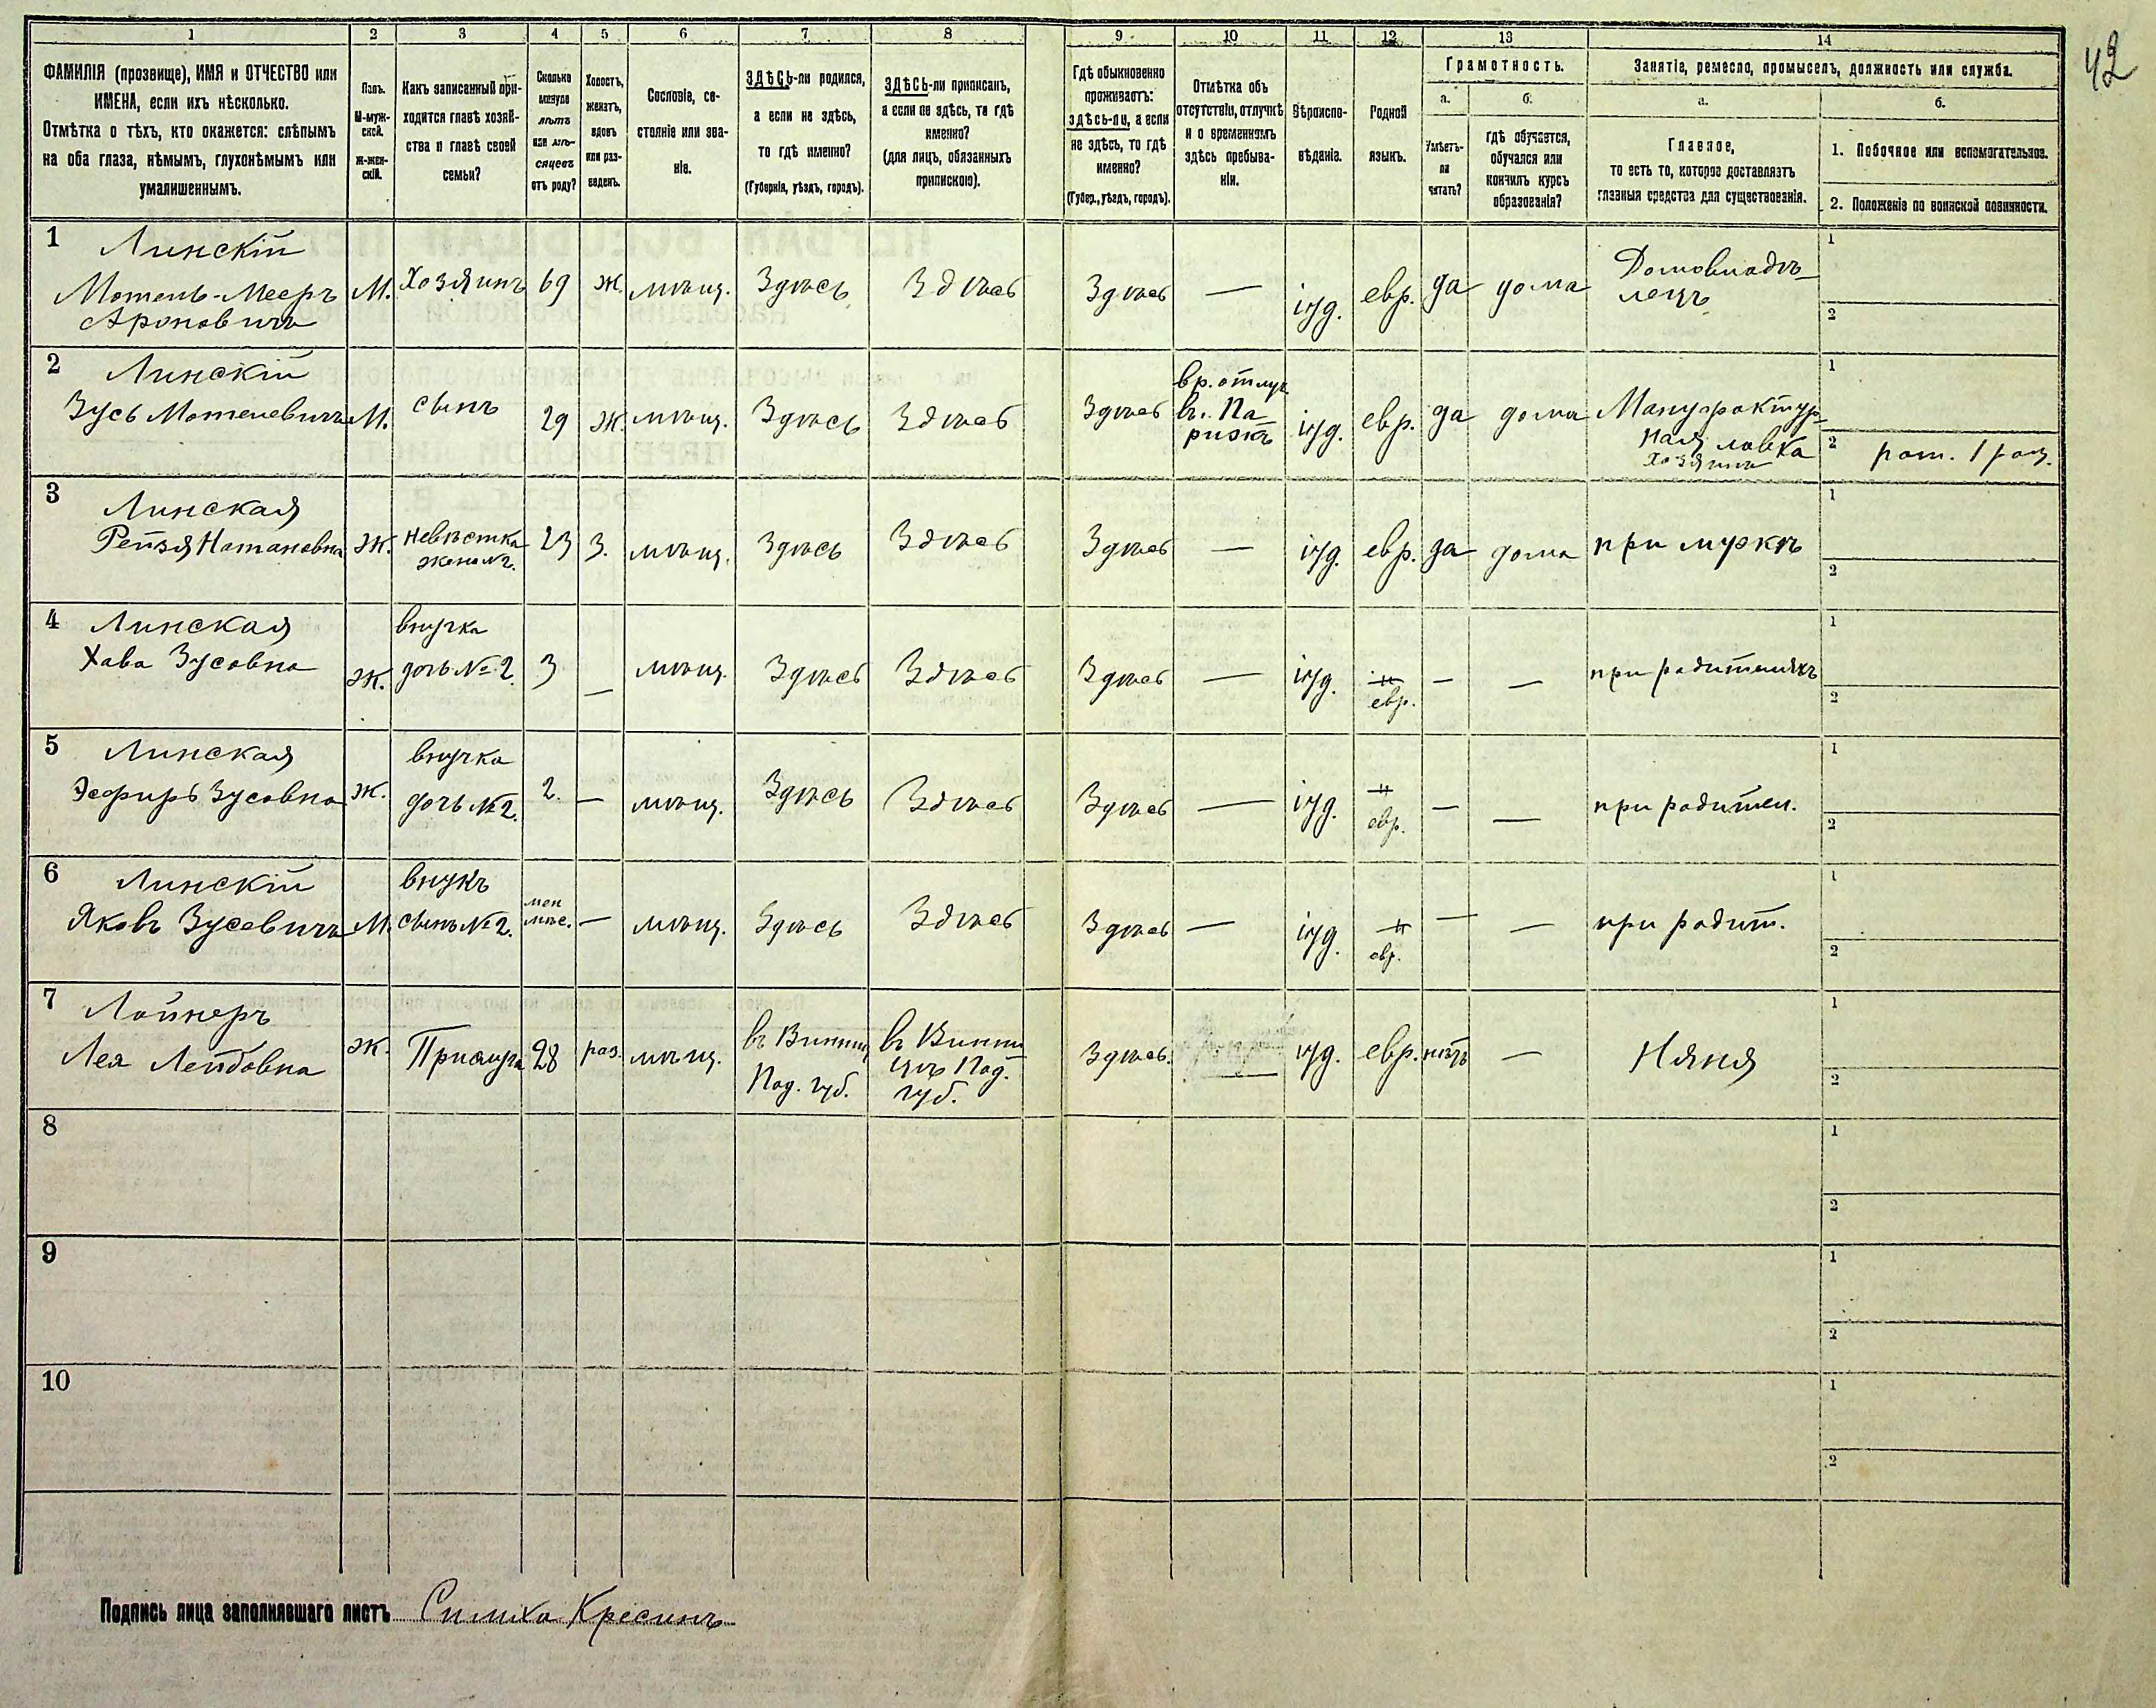 42
1 2 3 4 5 6 7 8 9 10 11 12 13 14
ФАМИЛІЯ (прозвище), ИМЯ и ОТЧЕСТВО или
ИМЕНА, если ихъ нѣсколько.
Отмѣтка о тѣхъ, кто окажется: слѣпымъ
на оба глаза, нѣмымъ, глухонѣмымъ или
умалишеннымъ.
Полъ.
М-муж-
ской.
Ж-жен-
скій.
Какъ записанный при-
ходится главѣ хозяй-
ства и главѣ своей
семьи?
Сколько
минуло
лѣтъ
или мѣ-
сяцевъ
отъ роду?
Холостъ,
женатъ,
вдовъ
или раз-
веденъ.
Сословіе, со-
стояніе или зва-
ніе.
ЗДѢСЬ-ли родился,
а если не здѣсь,
то гдѣ именно?
(Губернія, уѣздъ, городъ).
ЗДѢСЬ-ли приписанъ,
а если не здѣсь, то гдѣ
именно?
(для лицъ, обязанныхъ
припискою).
Гдѣ обыкновенно
проживаетъ:
здѣсь-ли, а если
не здѣсь, то гдѣ
именно?
(Губер., уѣздъ, городъ).
Отмѣтка объ
отсутствіи, отлучкѣ
и о временномъ
здѣсь пребыва-
ніи.
Вѣроиспо-
вѣданіе.
Родной
языкъ.
Грамотность.
а.
Умѣетъ-
ли
читать?
б.
гдѣ обучается,
обучался или
кончилъ курсъ
образованія?
Занятіе, ремесло, промыселъ, должность или служба.
а.
Главное,
то есть то, которое доставляетъ
главныя средства для существованія.
б.
1. Побочное или вспомогательное.
2. Положеніе по воинской повинности.
1
Линскій
Мотель-Мееръ
Ароновичъ
М.
Хозяинъ
69
ж.
мѣщ.
Здѣсь
Здѣсь
Здѣсь
—
іуд.
евр.
да
дома
Домовладѣ-
лецъ
1
2
2
Линскій
Зусь Мотелевичъ
М.
сынъ
29
ж.
мѣщ.
Здѣсь
Здѣсь
Здѣсь
вр. отлуч
въ Па
рижъ
іуд.
евр.
да
дома
Мануфактур-
ная лавка
хозяинъ
1
2
3
Линская
Рейзя Натановна
Ж.
невѣстка
жена №2.
23
З.
мѣщ.
Здѣсь
Здѣсь
Здѣсь
—
іуд.
евр.
да
дома
при мужѣ
1
2
4
Линская
Хава Зусовна
Ж.
внучка
дочь №2.
3
—
мѣщ.
Здѣсь
Здѣсь
Здѣсь
—
іуд.
евр.
—
—
при родителяхъ
1
2
5
Линская
Эсфирь Зусовна
Ж.
внучка
дочь №2.
2.
—
мѣщ.
Здѣсь
Здѣсь
Здѣсь
—
іуд.
евр.
—
—
при родител.
1
2
6
Линскій
Яковъ Зусевичъ
М.
внукъ
сынъ №2.
мен
мѣс.
—
мѣщ.
Здѣсь
Здѣсь
Здѣсь
—
іуд.
евр.
—
—
при родит.
1
2
7
Лойнеръ
Лея Лейбовна
Ж.
Прислуга
28
раз.
мѣщ.
въ Винниц
Под. губ.
въ Винни
цѣ Под.
губ.
Здѣсь.
іуд.
евр.
нѣтъ
—
Няня
1
2
8
1
2
9
1
2
10
1
2
Подпись лица заполнявшаго листъ Симха Кресинъ